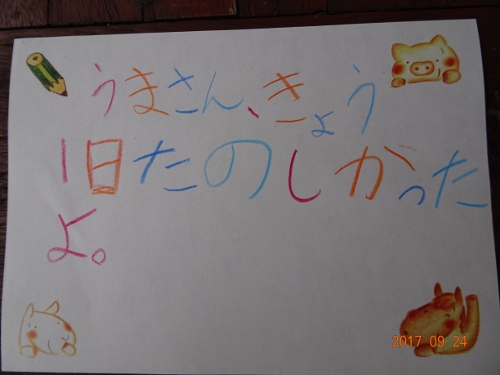 うまさん、きょう
1日たのしかった
よ。
2017 09 24